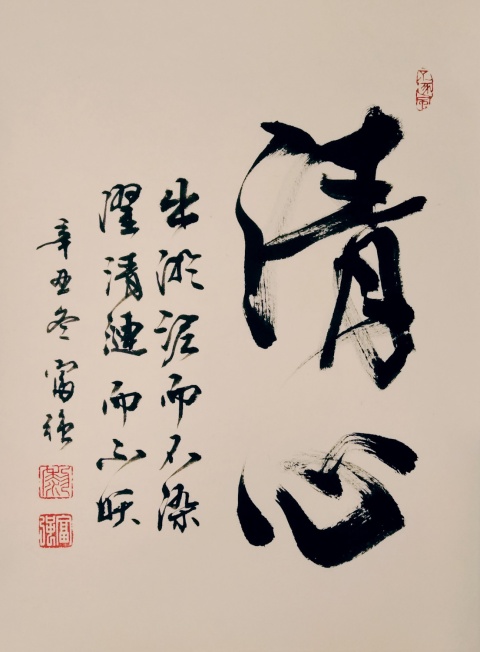 清心
出淤泥而不染
濯清漣而不妖
辛丑冬 富强
富强